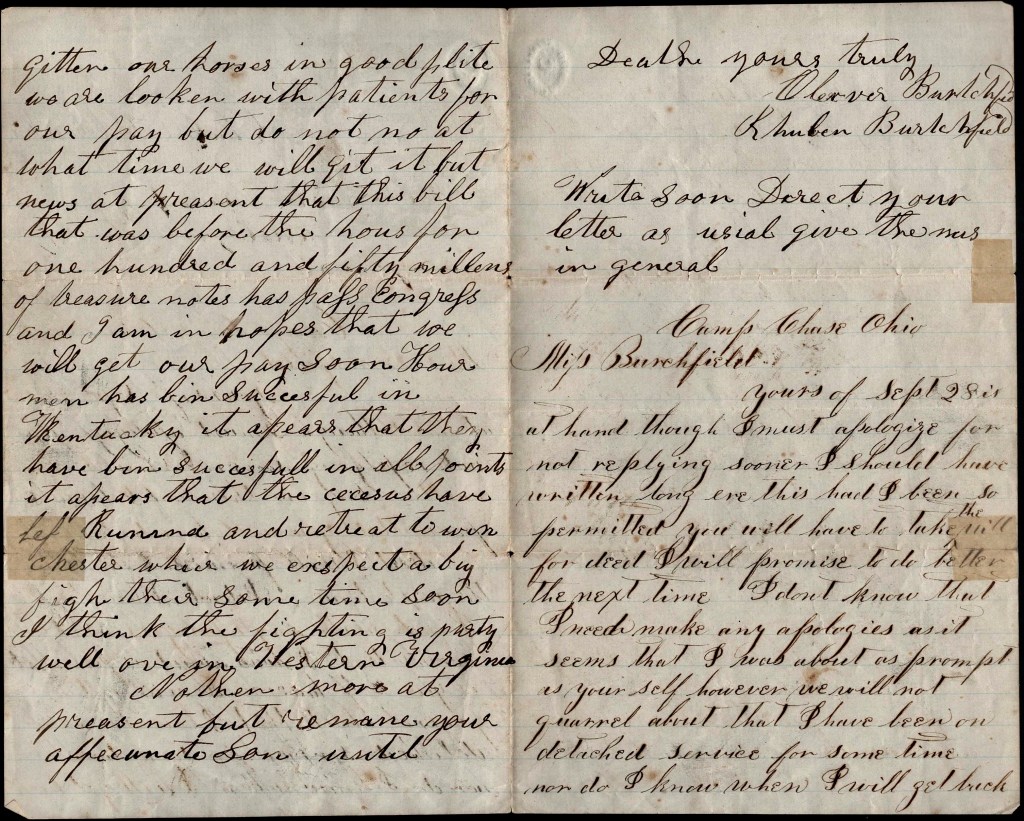 gitten our horses in good plite
we are looken with patients for
our pay but do not no at
what time we will git it but
news at preasent that this bill
that was before the hous for
one hundred and fifty millens
of treasure notes has pass Congress
and I am in hopes that we
will get our pay soon Hour
men has bin succesful in
Kentucky it apears that they
have bin succesfull in all points
it apears that the cecesus have
lef and retreat to win
chester whir we exspect a big
figh their some time soon
I think the fighting is purty
well ove in Western Virginia
Nothen more at
preasent but remane your
affecunate Son until
Death yours truly
Olever Burtchfield
Rhuben Burtchfield
Write soon Derect your
letter as usial give the nus
in general
Camp Chase Ohio
Miss Burchfield
yours of Sept 28 is
at hand though I must apologize for
not replying sooner I should have
written long ere this had I been so
permitted you will have to take the will
for deed I will promise to do better
the next time I dont know that
I need make any apologies as it
seems that I was about as prompt
as your self however we will not
quarrel about that I have been on
detached service for some time
nor do I know when I will get back